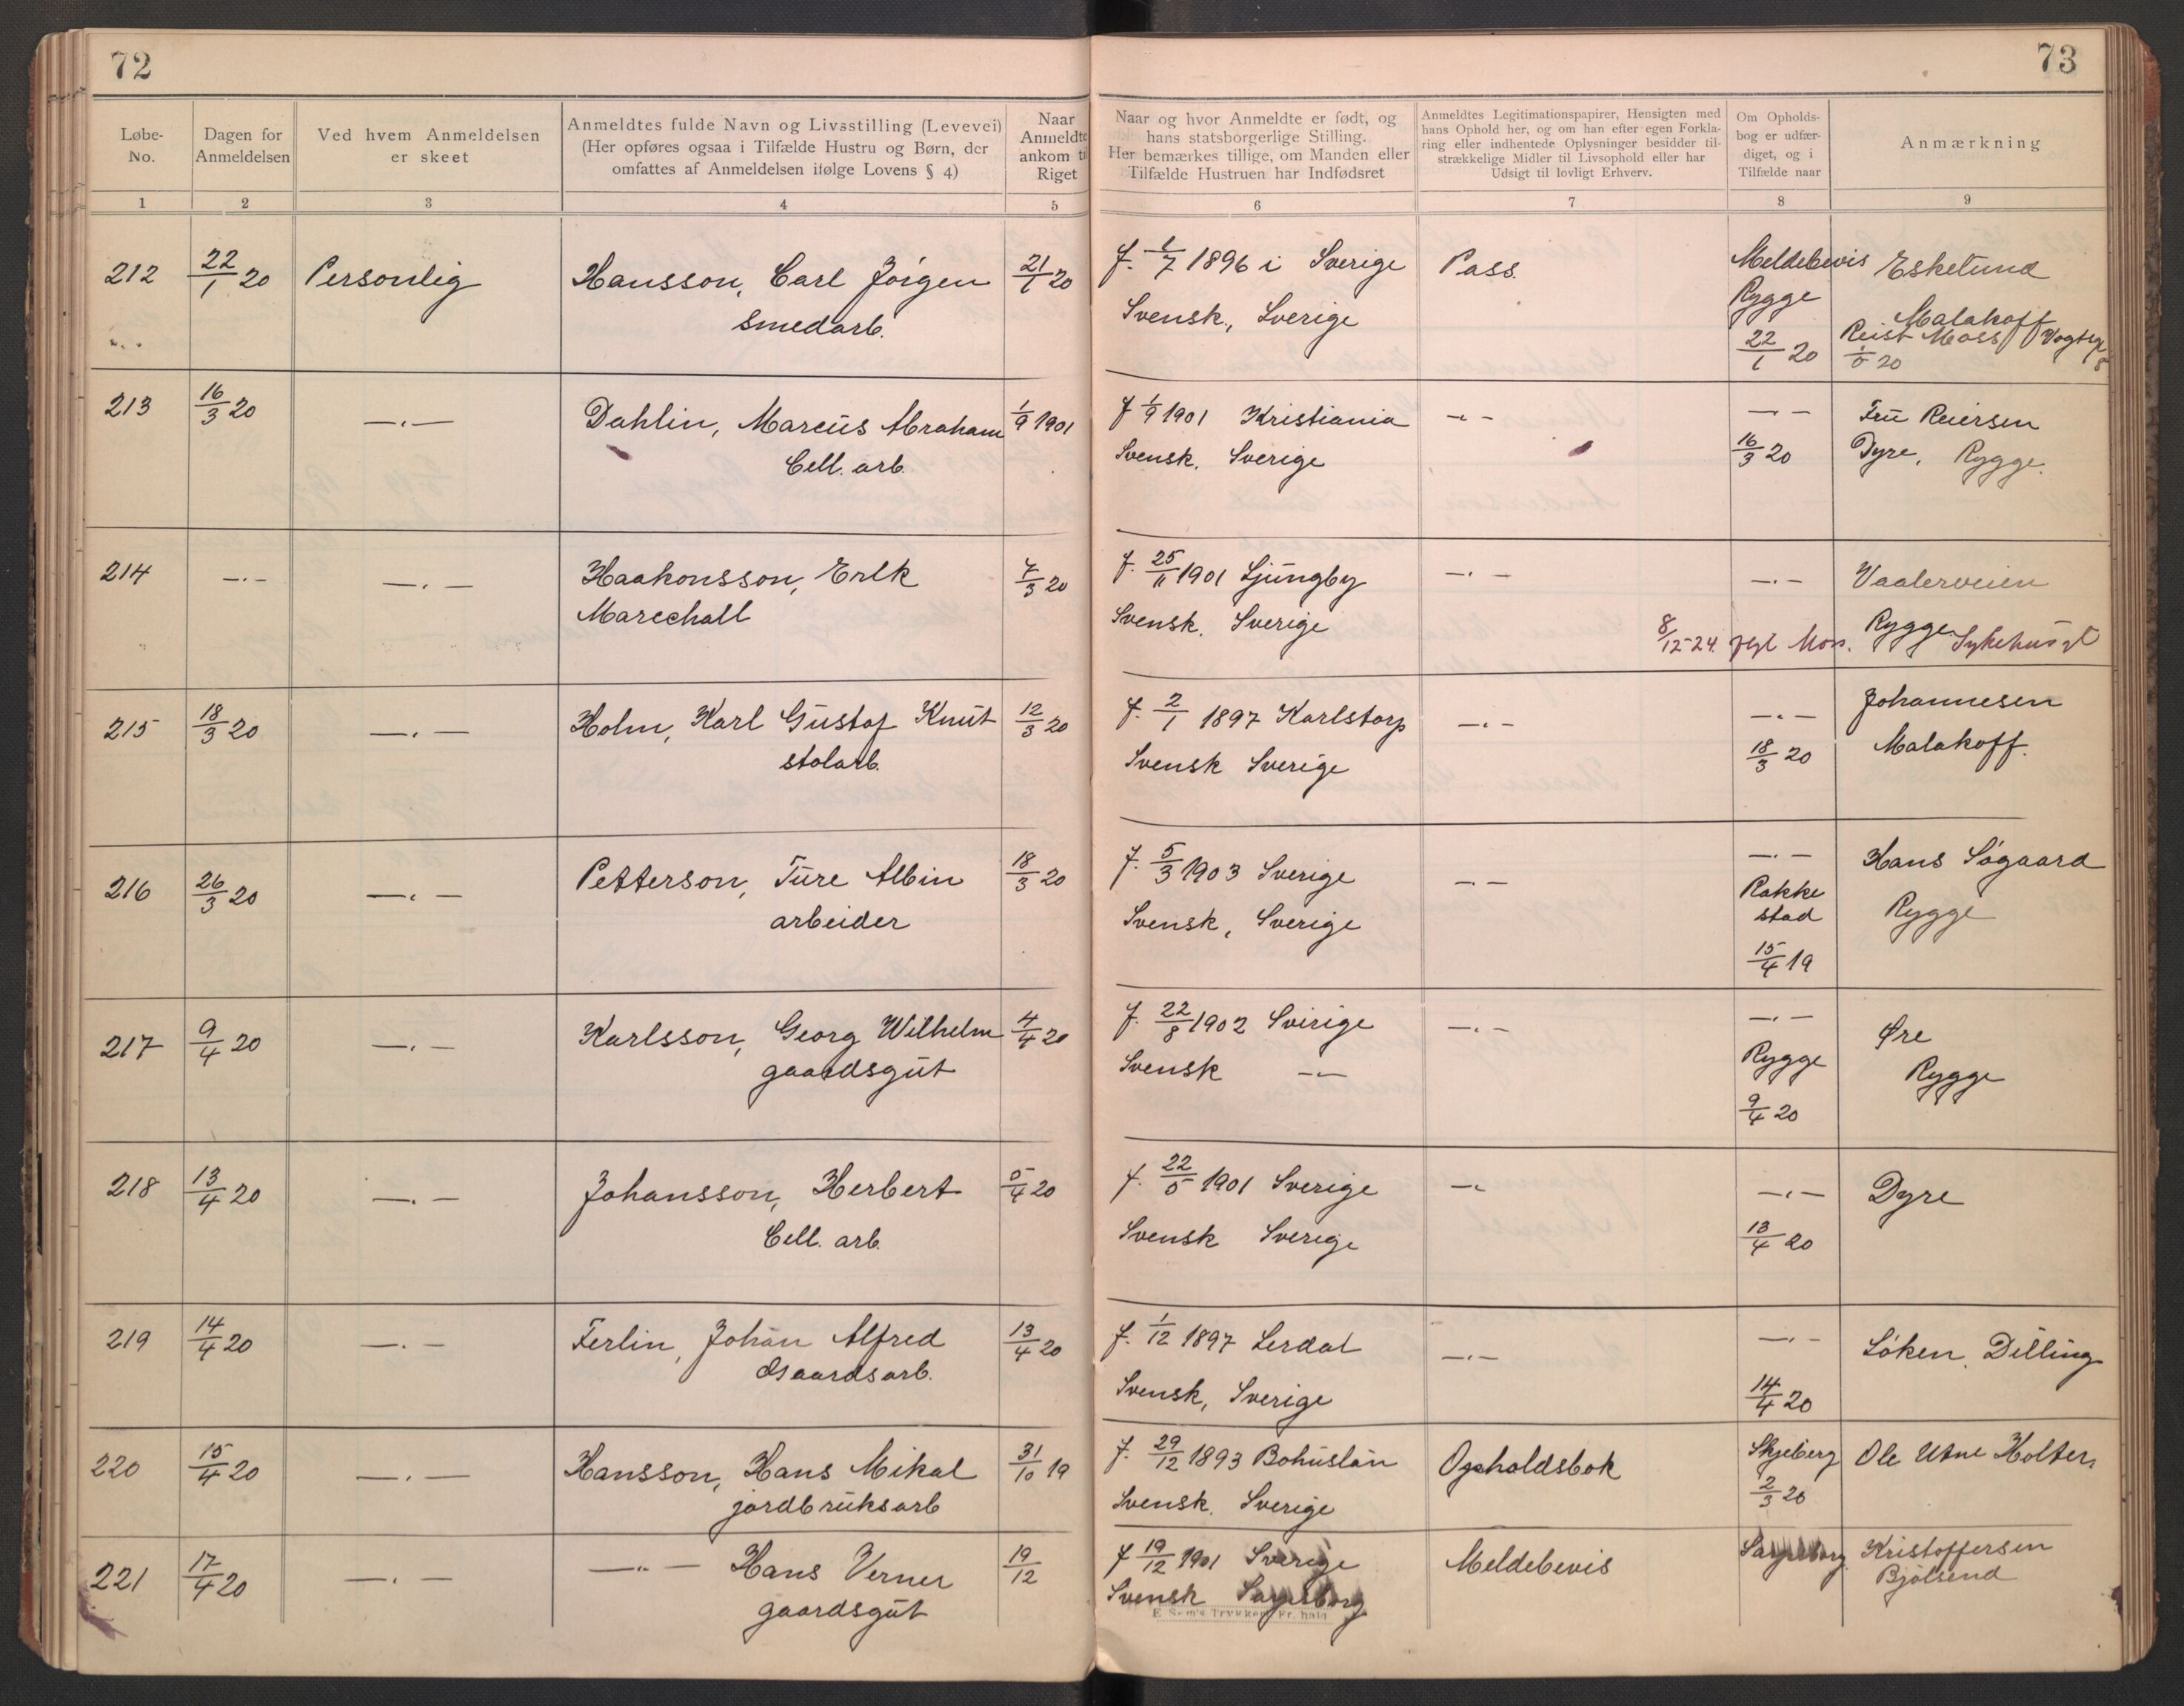 72
73
Løbe-No.
Dagen for Anmeldelsen
Ved hvem Anmeldelsen er skeet
Anmeldtes fulde Navn og Livsstilling (Levevei)
(Her opføres ogsaa i Tilfælde Hustru og Børn, der
omfattes af Anmeldelsen ifølge Lovens § 4)
Naar
Anmeldte
ankom til
Riget
Naar og hvor Anmeldte er født, og
hans statsborgerlige Stilling.
Her bemærkes tillige, om Manden eller
Tilfælde Hustruen har Indfødsret
Anmeldtes Legitimationspapirer, Hensigten med
hans Ophold her, og om han efter egen Forkla-
ring eller indhentede Oplysninger besidder til-
strækkelige Midler til Livsophold eller har
Udsigt til lovligt Erhverv.
Om Opholds-
bog er udfær-
diget, og i
Tilfælde naar
Anmærkning
1 2 3 4 5 6 7 8 9
212 22/1 20 Personlig Hansson, Carl Jörgen 21/1 20 f. 1/7 1896 i Sverige Pass. Meldebevis Eskelund
smedarb. Svensk, Sverige Rygge Malakoff
22/1 20 Reist Moss Vogtsg. 8
1/5 20
213 16/3 20 —„— Dahlin, Marcus Abraham 1/9 1901 f 1/9 1901 Kristiania —„— —„— Fru Reiersen
Cell. arb. Svensk. Sverige 16/3 20 Dyre, Rygge.
214 —„— —„— Haakonsson, Erik 7/3 20 f. 25/11 1901 Ljungby —„— —„— Vaalerveien
Marechall Svensk. Sverige Rygge.
8/12-24. Moss. Sykehuset
215 18/3 20 —„— Holm, Karl Gustaf Knut 12/3 20 f. 2/1 1897 Karlstorp —„— —„— Johannesen
stolarb. Svensk Sverige 18/3 20 Malakoff.
216 26/3 20 —„— Petterson, Ture Albin 18/3 20 f. 5/3 1903 Sverige —„— —„— Hans Søgaard
arbeider Svensk, Sverige Rakke
stad Rygge
15/4 19
217 9/4 20 —„— Karlsson, Georg Wilhelm 4/4 20 f. 22/8 1902 Sverige —„— —„— Øre
gaardsgut Svensk —„— Rygge Rygge
9/4 20
218 13/4 20 —„— Johansson, Herbert 5/4 20 f. 22/5 1901 Sverige —„ —„— Dyre
Cell. arb. Svensk Sverige 13/4 20
219 14/4 20 —„— Ferlin, Johan Alfred 13/4 20 f. 1/12 1897 Lerdal —„— —„— Løken, Dilling
Gaardsarb. Svensk, Sverige 14/4 20
220 15/4 20 —„— Hansson, Hans Mikal 31/10 19 f. 29/12 1893 Bohuslän Opholdsbok Skjeberg Ole Utne Holter.
jordbruksarb Svensk. Sverige 2/3 20
221 17/4 20 —„— —„— Hans Verner 19/12 f 19/12 1901 Sverige Meldebevis Sarpsborg Kristoffersen
gaardsgut Svensk Sarpsborg Bjølsend
E. Sem's Trykkeri, Fr.hald